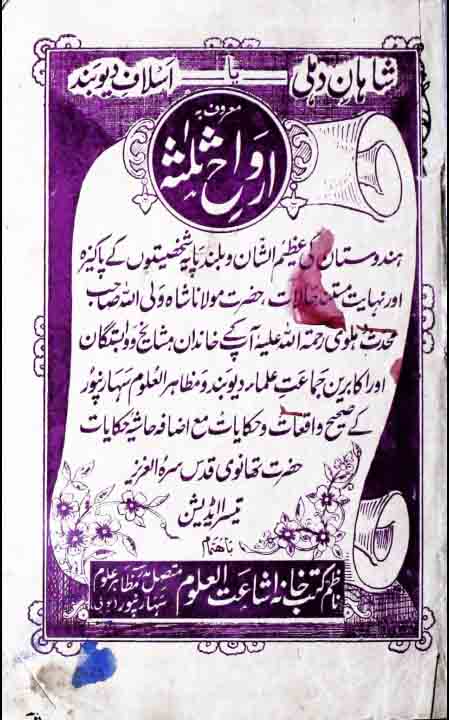 شاہان دہلی یا اسلاف دیوبند
معروف بہ
ارواح ثلٰثہ
ہندوستان کی عظیم الشان و بلند پایہ شخصیتوں کے پاکیزہ
اور نہایت مستند حالات، حضرت مولانا شاہ ولی اللہ صاحب
محدث دہلوی رحمۃ اللہ علیہ آپ کے خاندان مشایخ و وابستگان
اور اکابرین جماعت علماء دیوبند و مظاہر العلوم سہارنپور
کے صحیح واقعات و حکایات مع اضافہ حاشیہ حکایات
حضرت تھانوی قدس سرہ العزیز
تیسرا ایڈیشن
باہتمام
ناظم کتب خانہ اشاعت العلوم متصل مدرسہ مظاہر علوم
سہارنپور (یوپی)